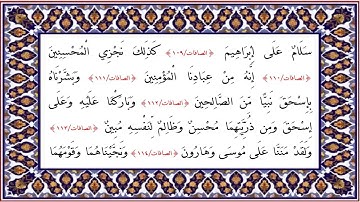 سَلَامٌ عَلَى إِبْرَاهِيمَ ﴿الصافات/١٠٩﴾ كَذَلِكَ نَجْزِي الْمُحْسِنِينَ
﴿الصافات/١١٠﴾ إِنَّهُ مِنْ عِبَادِنَا الْمُؤْمِنِينَ ﴿الصافات/١١١﴾ وَبَشَّرْنَاهُ
بِإِسْحَقَ نَبِيًّا مِنَ الصَّالِحِينَ ﴿الصافات/١١٢﴾ وَبَارَكْنَا عَلَيْهِ وَعَلَى
إِسْحَقَ وَمِن ذُرِّيَّتِهِمَا مُحْسِنٌ وَظَالِمٌ لِّنَفْسِهِ مُبِينٌ ﴿الصافات/١١٣﴾
وَلَقَدْ مَنَنَّا عَلَى مُوسَى وَهَارُونَ ﴿الصافات/١١٤﴾ وَنَجَّيْنَاهُمَا وَقَوْمَهُمَا